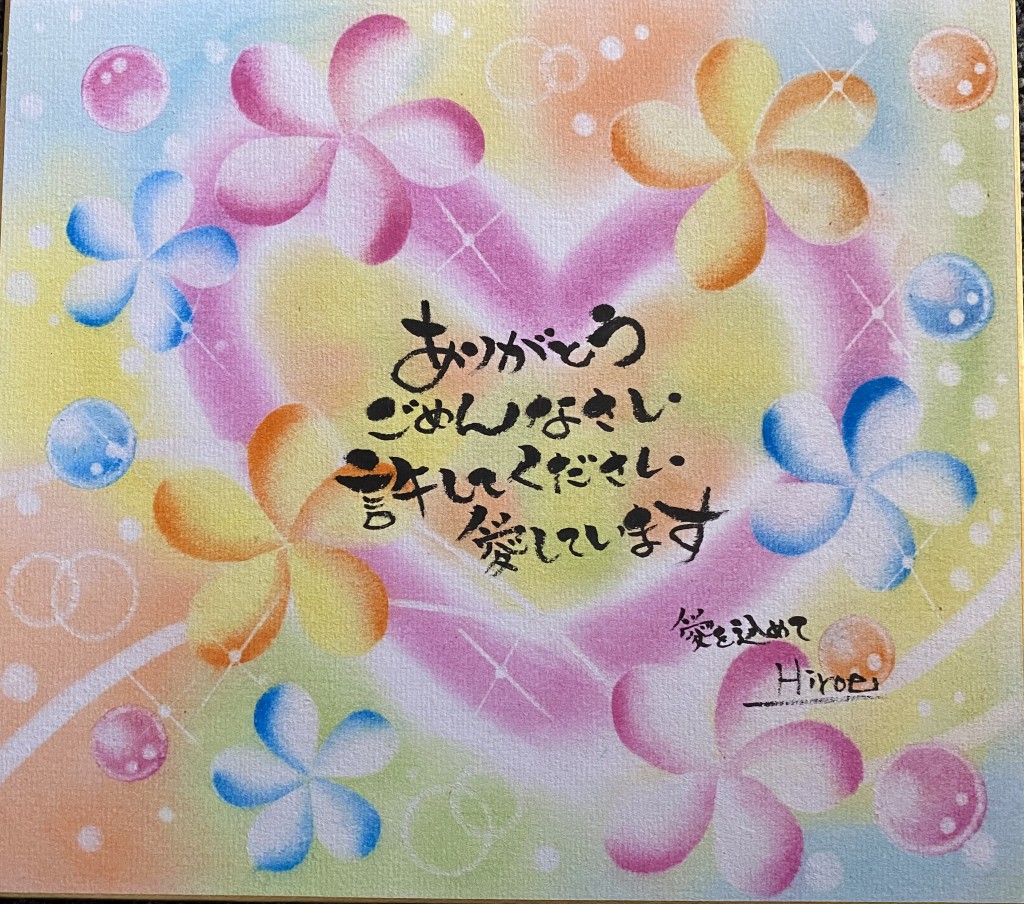 ありがとう
ごめんなさい
許してください
愛しています
愛を込めて
Hiroe